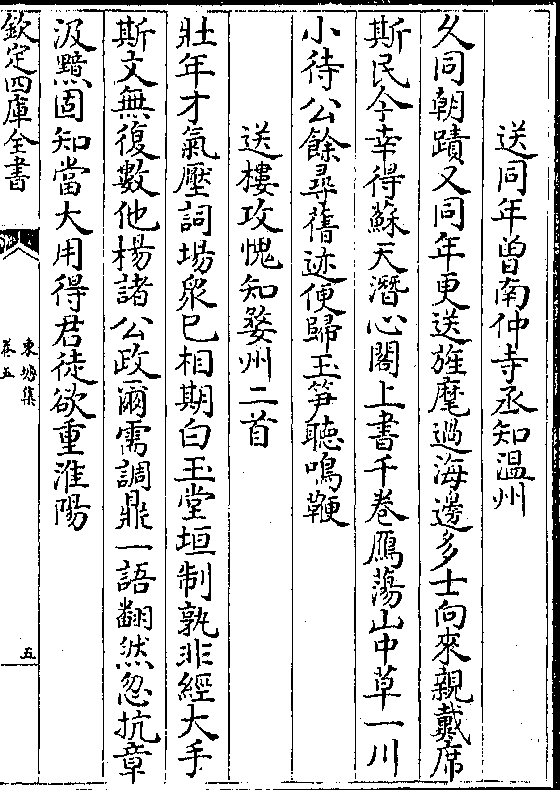 送同年曽南仲寺丞知温州
久同朝蹟又同年更送旌麾過海邊多士向來親戴席
斯民今幸得蘇天潛心閣上書千卷鴈蕩山中草一川
小待公餘尋舊迹便歸玉笋聽鳴鞭
送樓攻愧知婺州二首
壯年才氣壓詞場衆已相期白玉堂垣制孰非經大手
斯文無復數他楊諸公政爾需調鼎一語翻然忽抗章
汲黯固知當大用得君徒欲重淮陽
欽定四庫全書
東塘集
卷五
五